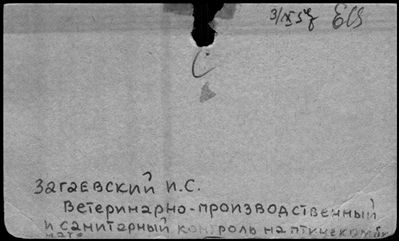 3/IX 57
С
Загаевский И.С.
Ветеринарно-производственный
и санитарный контроль на птицекомби
нате